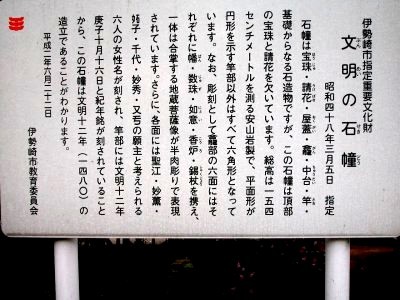 伊勢崎市指定重要文化財
文明の石幢
昭和四十八年三月五日　指定
石幢は宝珠・請花・屋蓋・龕・中台・竿・
基礎からなる石造物ですが、この石幢は頂部
の宝珠と請花を欠いています。総高は一五四
センチメートルを測る安山岩製で、平面形が
円形を示す竿部以外はすべて六角形となって
います。なお、彫刻として龕部の六面にはそ
れぞれに幡・数珠・如意・香炉・錫杖を携え、
一体は合掌する地蔵菩薩像が半肉彫りで表現
されています。さらに、各面には聖江・妙薫・
・千代・妙秀・又亏の願主と考えられる
六人の女性名が刻され、竿部には文明十二年
庚子十月十六日と紀年銘が刻されていること
から、この石幢は文明十二年（一四八〇）の
造立であることがわかります。
平成二年六月二十二日
伊勢崎市教育委員会